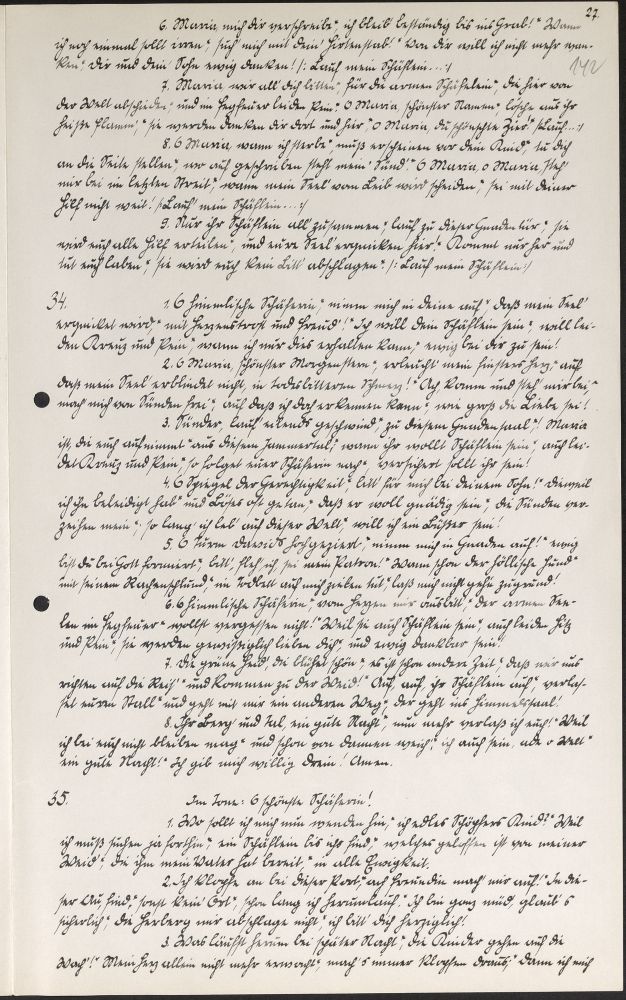 27.
142
6. Maria, mich dir verschreibe, ich bleib beständig bis ins Grab! Wann
ich noch einmal sollt irren, such mich mit dein' Hirtenstab! Von dir will ich nicht mehr wan-
ken, dir und dein' Sohn ewig danken! /: Lauf mein Schäflein...:/
7. Maria, wir all' dich bitten, für die armen Schäfelein, die hier von
der Welt abscheiden, und im Fegfeuer leiden Pein. O Maria, schönster Namen, lösche aus ihr
heiße Flamm', sie werden danken dir dort und hier, o Maria, du schönste Zier! /:Lauf...:/
8. O Maria, wann ich sterbe, muß erscheinen vor dein Kind, tu dich
an die Seite stellen, wo auf geschrieben steht mein' Sünd! O Maria, o Maria, steh'
mir bei im letzten Streit, wann mein Seel' vom Leib wird scheiden, sei mit deiner
Hilf nicht weit! /:Lauf' mein Schäflein...:/
9. Nur ihr Schäflein all' zusammen, lauf zu dieser Gnadentür, sie
wird euch alle Hilf erteilen, und eure Seel' erquicken hier. Kommt nur her und
tut euch laben, sie wird euch kein' Bitt' abschlagen. /: Lauf mein Schäflein:/
34. 1. O himmlische Schäferin, nimm mich in deine auf, daß mein Seel'
erquicket wird, mit Herzenstrost und Freud'! Ich will dein Schäflein sein, will lei-
den Kreuz und Pein, wann ich nur dies erhalten kann, ewig bei dir zu sein!
2. O Maria, schönster Morgenstern, erleucht' mein finsters Herz, auf
daß mein Seel' erblindet nicht, in todesbitteren Schmerz! Ach komm und steh' mir bei,
mach' mich von Sünden frei, auf daß ich doch erkennen kann, wie groß die Liebe sei!
3. Sünder, lauf eilends geschwind, zu diesem Gnadensaal! Maria
ist, die euch aufnimmt aus diesem Jammertal, wann ihr wollt Schäflein sein, auch lei-
det Kreuz und Pein, so folget eurer Schäferin nach, versichert sollt ihr sein!
4. O Spiegel der Gerechtigkeit, bitt' für mich bei deinem Sohn! Dieweil
ich ihn beleidigt hab' und Böses oft getan, daß er woll gnädig sein, die Sünden ver-
zeihen mein, so lang' ich leb' auf dieser Welt, will ich ein Büßer sein!
5. O Turm Davids hochgeziert, nimm mich in Gnaden auf! ewig
bist du bei Gott formiert, bitt', fleh' ich, sei mein Patron! Wann schon der höllische Hund
mit seinem Rachenschlund, im Todbett auf mich zielen tut, laß mich nicht gehn zugrund!
6. O himmlische Schäferin, vom Herzen mir ausbitt', der armen See-
len im Fegfeuer wollst vergessen nicht! Weil sie auch Schäflein sein, auch leiden Hitz
und Pein, sie werden gewißiglich lieben dich, und ewig dankbar sein!
7. Die grüne Heid', die blühet schön, es ist schon andere Zeit, daß wir uns
richten auf die Reis' und kommen zu der Weid! Auf, auf, ihr Schäflein auf, verlas-
set euren Stall und geht mit mir ein anderen Weg, der geht ins Himmelssaal!
8. Ihr Berg und Tal, ein gute Nacht, nun mehr verlaß ich euch! Weil
ich bei euch nicht bleiben mag und schon von dannen weich, ich auch sein, ade o Welt
ein gute Nacht! Ich gib mich willig drein! Amen.
35. Im Tone: O schönste Schäferin!
1. Wo sollt ich mich nun wenden hin, ich edles Schöpfers Kind? Weil
ich muß suchen ja forthin, ein Schäflein bis ichs find, welches geloffen ist von meiner
Weid', die ihm mein Vater hat bereit, in alle Ewigkeit.
2. Ich klopfe an bei dieser Port, ach Freundin mach' mir auf! In die-
ser Au find, sonst kein' Ort, schon lang ich herumlauf, Ich bin ganz müd, glaub's
sicherlich, die Herberg mir abschlage nicht, ich bitt' dich herziglich!
3. Was laufst herum bei später Nacht, die Kinder gehen auf die
Wach'! Mein Herz allein nicht mehr erwacht, mach's immer klopfen draus, dann ich mich